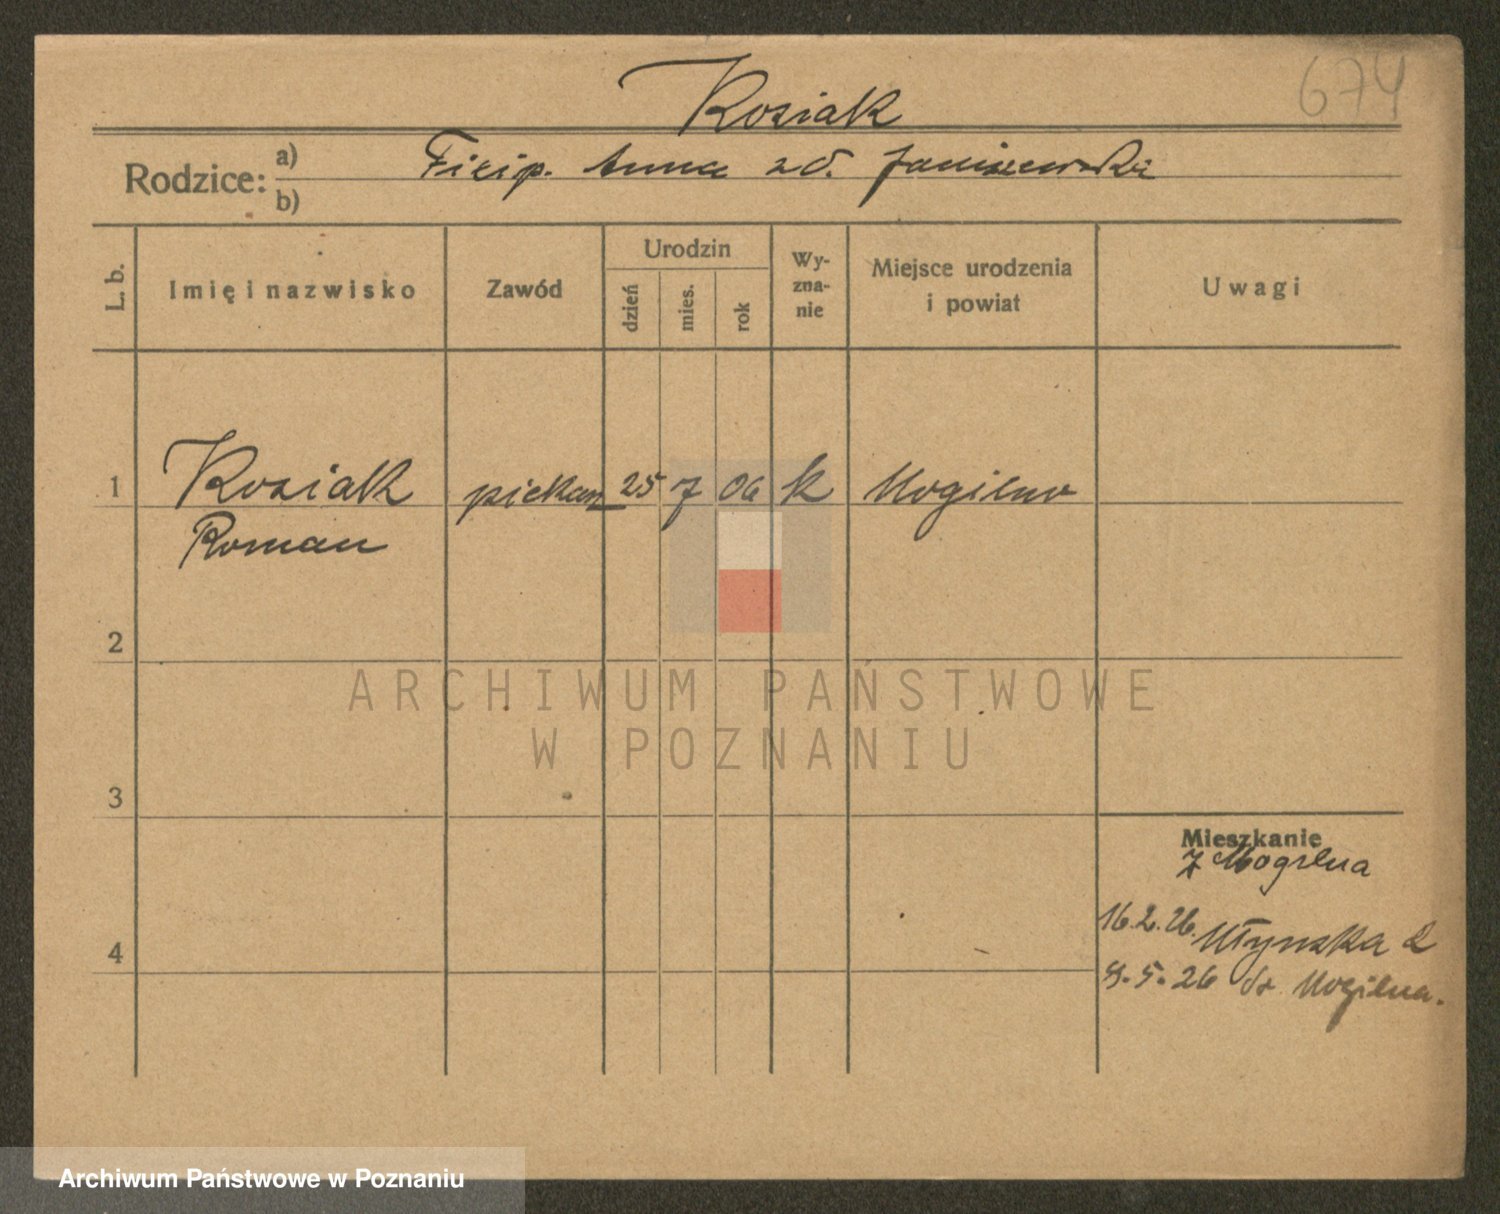 674
Kosiak
Rodzice: a) Filip. Anna zd. Janiszewska
b)
L. b.
Imię i nazwisko
Zawód
Urodzin
dzień
mies.
rok
Wy-
zna-
nie
Miejsce urodzenia
i powiat
Uwagi
1 Kosiak piekarz 25 7 06 k Mogilno
Roman
2
ARCHIWUM PAŃSTWOWE
W POZNANIU
3
Mieszkanie
z Mogilna
16.2.26. Młyńska 2
4
8.5.26 do Mogilna.
Archiwum Państwowe w Poznaniu